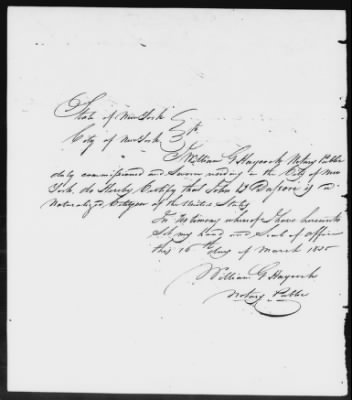 State of New York
City of New York
I William G Haycock Notary Public
duly commissioned and Sworn residing in the City of New
York, do Hereby Certify that John is a
Naturalized Citizen of the United States
In testimony whereof I have hereunto
Set my hand and Seal of Office
this 16th day of March
William G Haycock
Notary Public